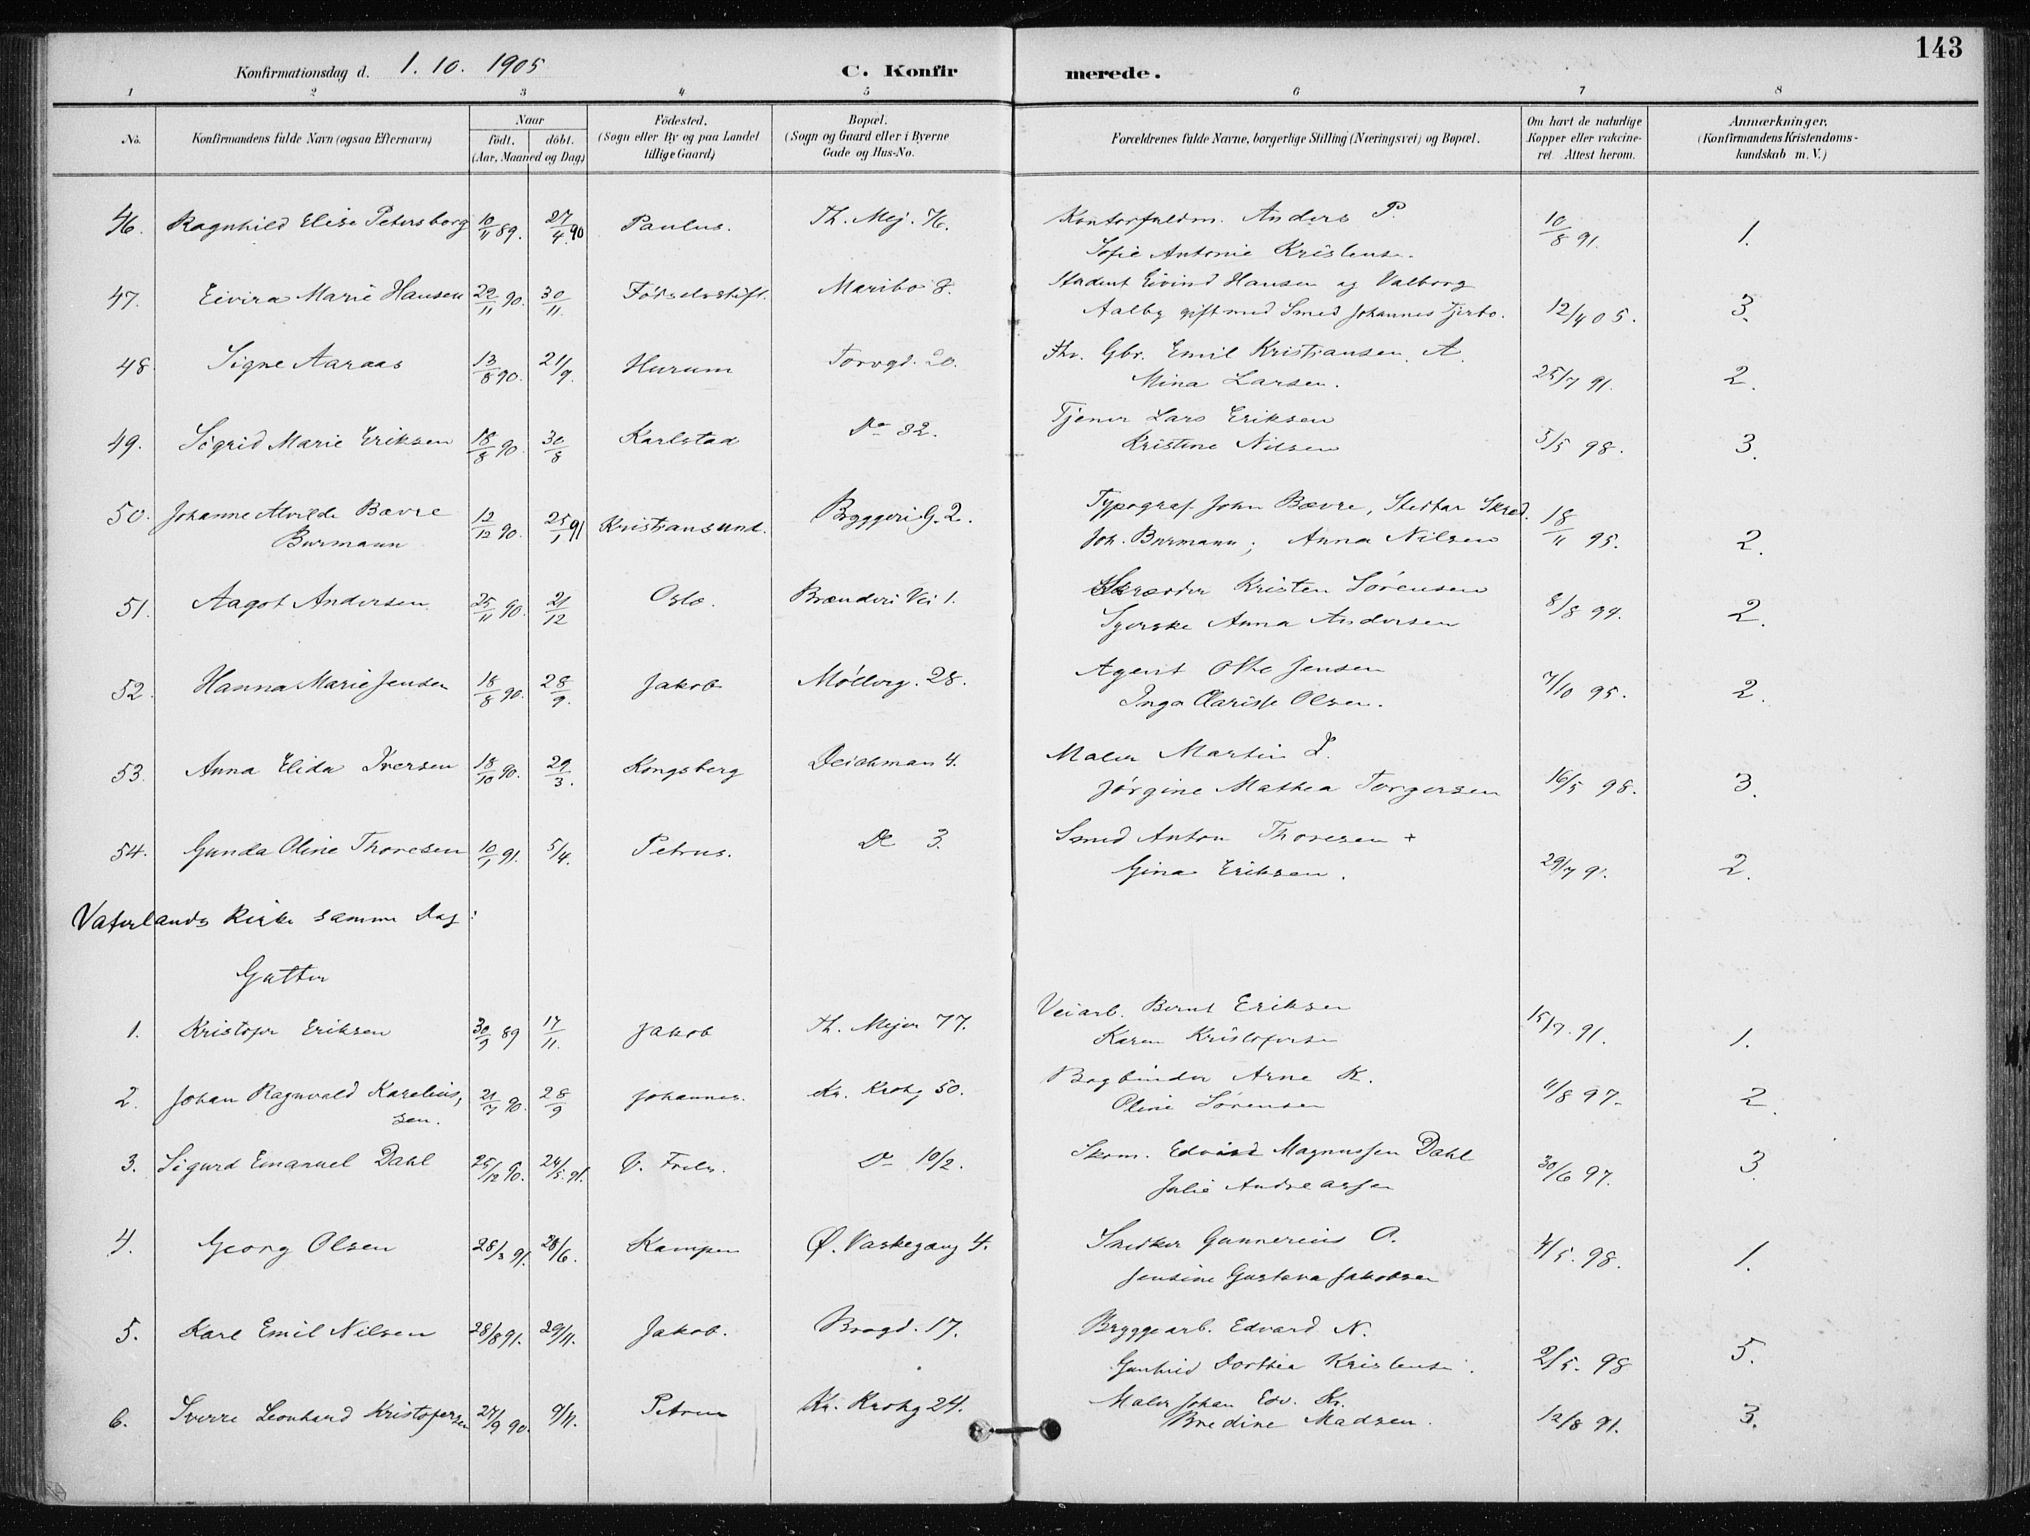 143
Konfirmationsdag d. 1. 10. 1905 C. Konfirmerede.
1 2 3 4 5 6 7 8
No. Konfirmandens fulde Navn (ogsaa Efternavn) Naar født. døbt. (Aar, Maaned og Dag) Fødested. (Sogn eller By og paa Landet tillige Gaard) Bopæl. (Sogn og Gaard eller i Byerne Gade og Hus-No. Forældrenes fulde Navne, borgerlige Stilling (Næringsvei) og Bopæl. Om havt de naturlige Kopper eller vakcineret. Attest herom. Anmærkninger. (Konfirmandens Kristendomskundskab m. V.)
46. Ragnhild Elise Petersborg 10/11 89. 27/4 90 Paulus. Th. Mej. 76. Kontorfuldm. Anders P. 10/8 91. 1.
Sofie Antonie Kristense.
47. Eivira Marie Hansen 22/11 90. 30/11. Fødselsstift. Maribo 8. Student Eivind Hansen og Valborg
Aalby gift med Smed Johannes Tjerbo. 12/4 05. 3.
48. Signe Aaraas 13/8 90. 21/9. Hurum Torvgd. 20. Emil Kristiansen A.
Mina Larsen. 25/7 91. 2.
49. Sigrid Marie Eriksen 18/8 90. 30/8 Karlstad Do 32. Tjener Lars Eriksen
Kristine Nilsen 5/5 98. 3.
50. Johanne Alvilde Bævre 12/12 90. 25/1 91 Kristiansund. Bryggeri G. 2. Typograf John Bævre, Stedfar Skred.
Burmann Joh. Burmann; Anna Nilsen 18/11 95. 2.
51. Aagot Andersen 25/11 90. 21/12 Oslo. Brænderi Vei 1. Skrædder Kristen Sørensen
Syerske Anna Andersen 8/8 94. 2.
52. Hanna Marie Jensen 18/8 90. 28/9. Jakob Møllerg. 28. Agent Otto Jensen
Inga Clarisse Olsen. 7/10 95. 2.
53. Anna Elida Iversen 18/10 90. 29/3. Kongsberg Deichman 4. Maler Martin I.
Jørgine Mathea Torgersen 16/5 98. 3.
54. Gunda Oline Thoresen 10/1 91. 5/4. Petrus. Do 3. Smed Anton Thoresen +
Gina Eriksen. 29/7 91. 2.
Vaterlands Kirke samme Dag:
Gutter
1. Kristofer Eriksen 30/9 89 17/11. Jakob Th. Mejer 77. Veiarb. Bernt Eriksen
Karen Kristoferse 15/7. 91. 1.
2. Johan Ragnvald Karelius, 21/7 90. 28/9 Johannes. Kr. Krohg 50. Bogbinder Arne K.
sen. Oline Sørensen 11/8 97. 2.
3. Sigurd Emanuel Dahl 25/12 90. 24/5. 91. V. Frels. Do 10/2. Skom. Edvard Magnussen Dahl
Julie Andreassen 30/6 97. 3.
4. Georg Olsen 28/3 91. 28/6. Kampen Ø. Vaskegang 4. Snedker Gunnerius O.
Jensine Gustava Jakobsen 4/5. 98. 1.
5. Karl Emil Nilsen 28/8 91. 29/11. Jakob. Brogd. 17. Bryggearb. Edvard N.
Gunhild Dorthea Kristense. 2/5. 98 5.
6. Sverre Leonhard Kristofersen 27/9 90. 9/11. Petrus Kr. Krohg 24. Maler Johan Edv. Kr.
Bredine Madsen. 12/8 91. 3.